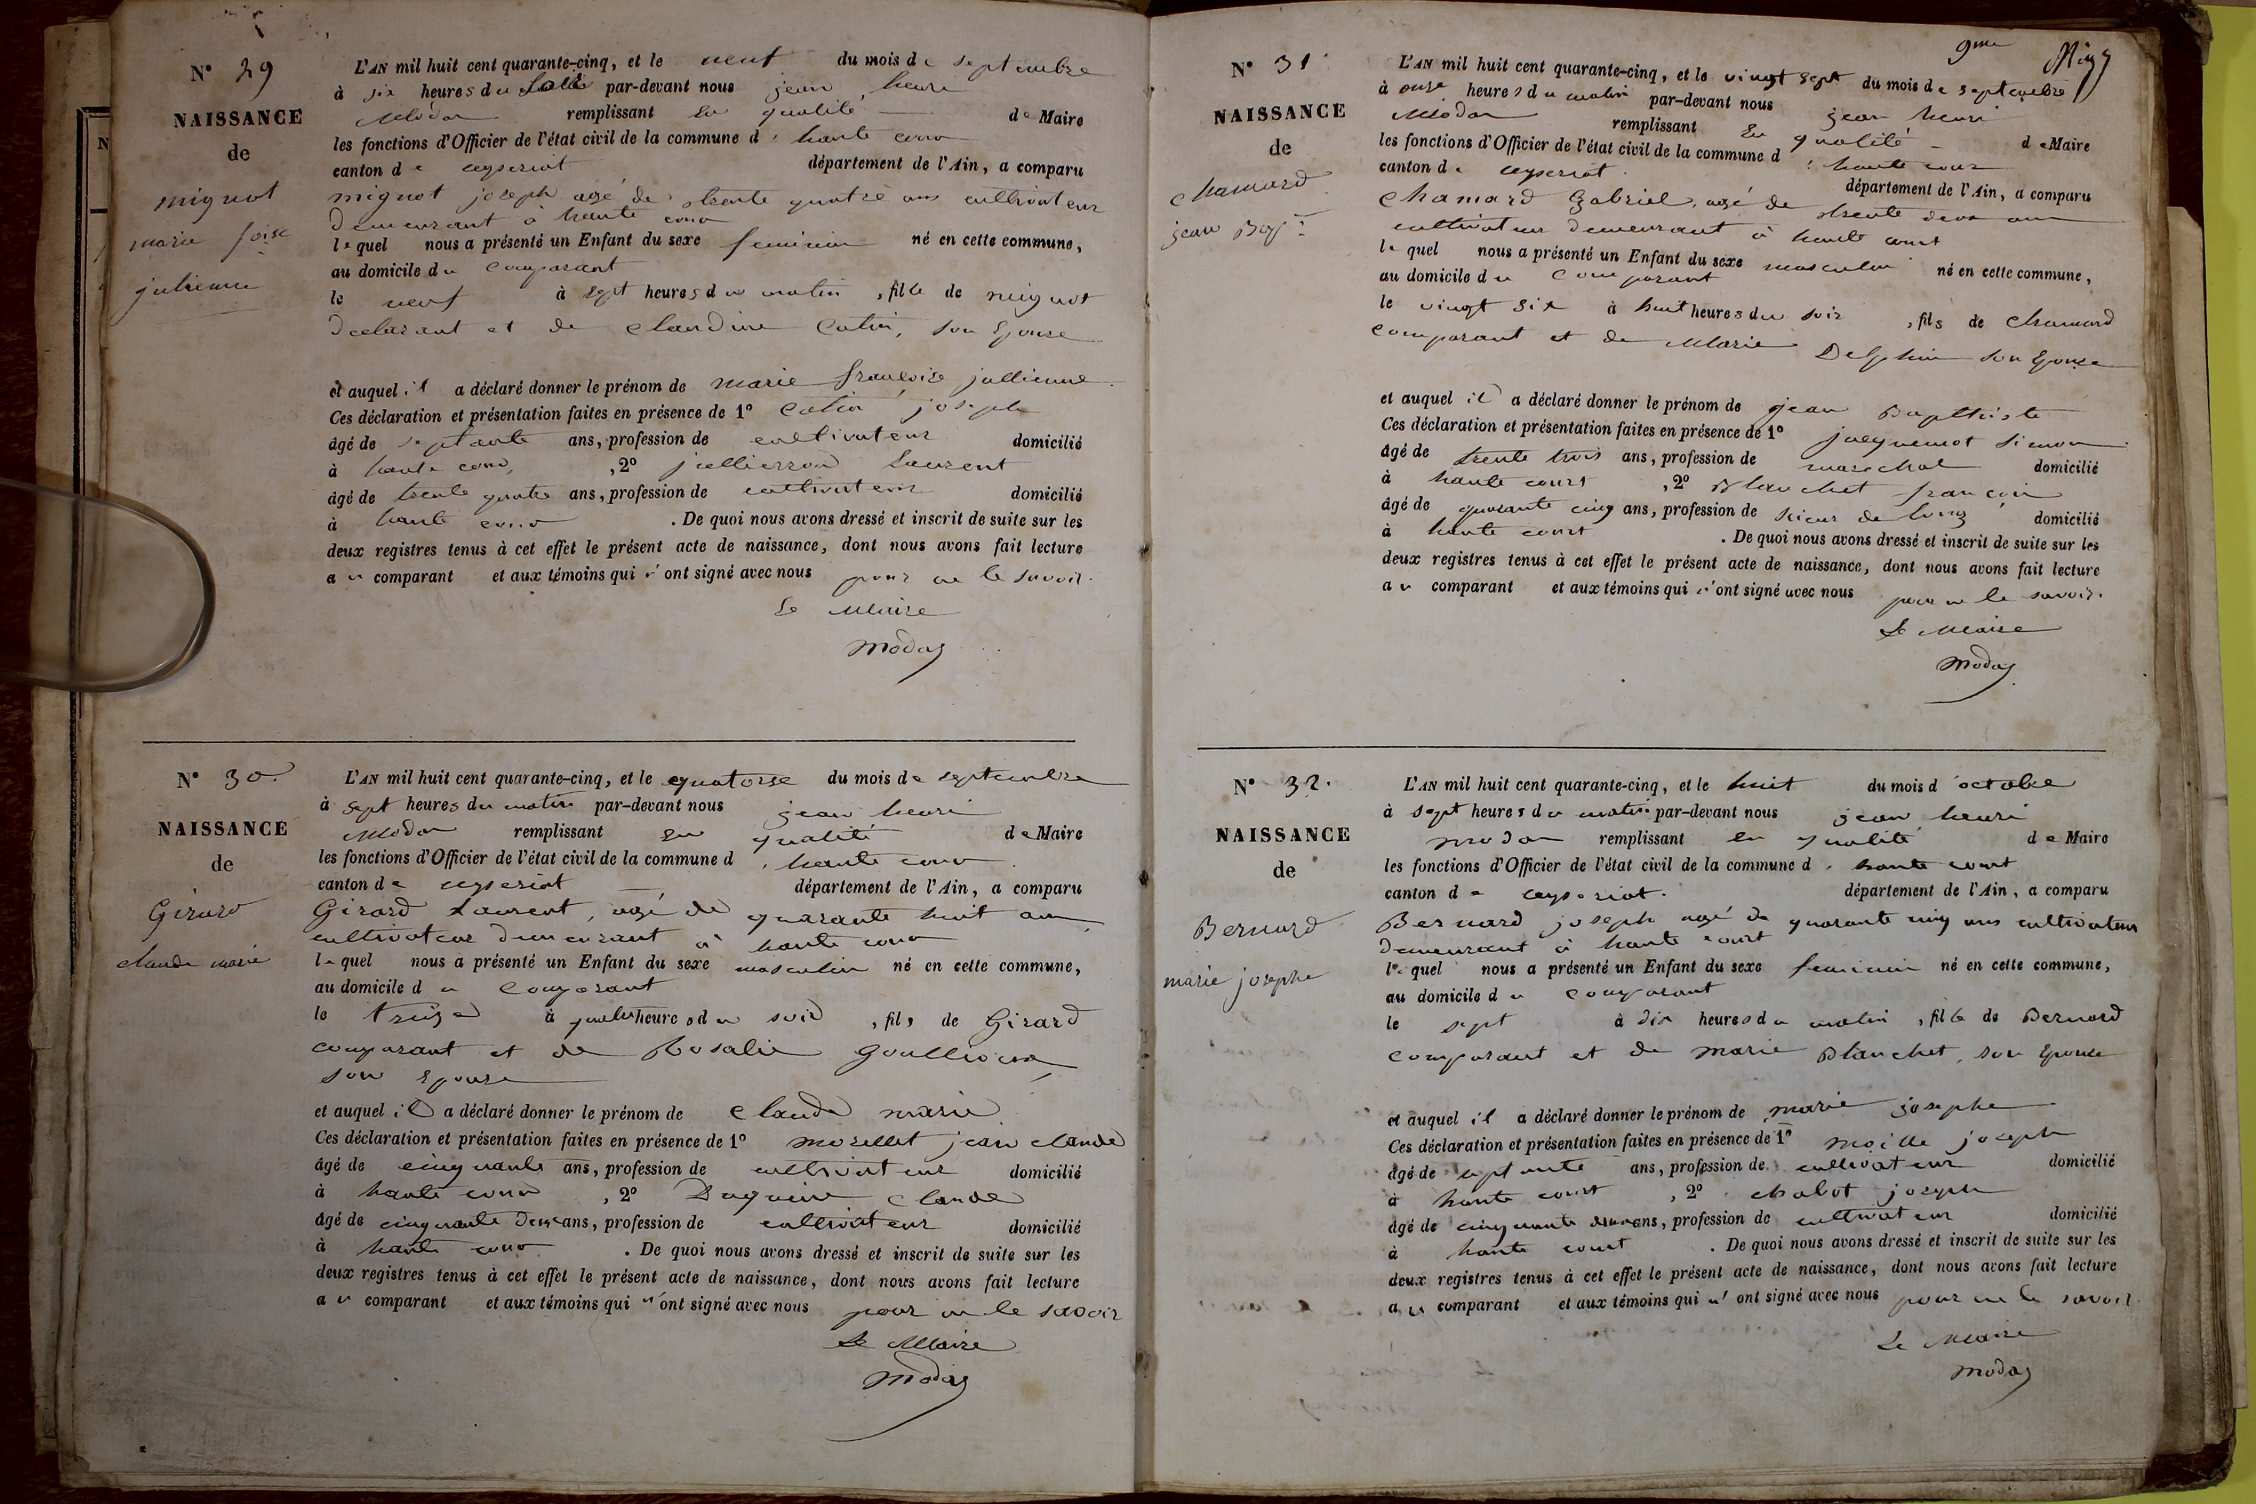 N° 29
NAISSANCE
de
mignot
marie foise
julienne
L'AN mil huit cent quarante-cinq, et le neuf du mois de septembre
à six heures du par-devant nous jean henri
Modas remplissant en qualité de Maire
les fonctions d'Officier de l'état civil de la commune d haute cour
canton de ceyseriat département de l'Ain, a comparu
mignot joseph agé de trente quatre ans cultivateur
demeurant à haute cour
lequel nous a présenté un Enfant du sexe feminin né en cette commune,
au domicile du comparant
le neuf à sept heures du matin, fille de mignot
declarant et de claudine Catin, son Epouse
et auquel il a déclaré donner le prénom de marie françoise jullienne
Ces déclaration et présentation faites en présence de 1° Catin joseph
âgé de septante ans, profession de cultivateur domicilié
à haute cour, 2° jullierron laurent
âgé de trente quatre ans, profession de cultivateur domicilié
à haute cour. De quoi nous avons dressé et inscrit de suite sur les
deux registres tenus à cet effet le présent acte de naissance, dont nous avons fait lecture
au comparant et aux témoins qui n'ont signé avec nous pour ne le savoir.
Le Maire
Modas
N° 30
NAISSANCE
de
Girard
claude marie
L'AN mil huit cent quarante-cinq, et le quatorse du mois de septembre
à sept heures du matin par-devant nous jean henri
Modas remplissant en qualité de Maire
les fonctions d'Officier de l'état civil de la commune d haute cour
canton de ceyseriat département de l'Ain, a comparu
Girard Laurent, agé de quarante huit ans
cultivateur demeurant à haute cour
lequel nous a présenté un Enfant du sexe masculin né en cette commune,
au domicile du comparant
le treize à quatre heures du soir, fils de Girard
comparant et de Rosalie
son Epouse
et auquel il a déclaré donner le prénom de claude marie
Ces déclaration et présentation faites en présence de 1° morellet jean claude
âgé de cinquante ans, profession de cultivateur domicilié
à haute cour, 2° claude
âgé de cinquante deux ans, profession de cultivateur domicilié
à haute cour. De quoi nous avons dressé et inscrit de suite sur les
deux registres tenus à cet effet le présent acte de naissance, dont nous avons fait lecture
au comparant et aux témoins qui n'ont signé avec nous pour ne le savoir
Le Maire
Modas
9me
N° 31
NAISSANCE
de
chamard
jean Bapte
L'AN mil huit cent quarante-cinq, et le vingt sept du mois de septembre
à onze heures du matin par-devant nous jean henri
Modas remplissant en qualité de Maire
les fonctions d'Officier de l'état civil de la commune d haute cour
canton de ceyseriat département de l'Ain, a comparu
chamard Gabriel, agé de trente deux ans
cultivateur demeurant à haute court
lequel nous a présenté un Enfant du sexe masculin né en cette commune,
au domicile du comparant
le vingt six à huit heures du soir, fils de chamard
comparant et de Marie Delphin son Epouse
et auquel il a déclaré donner le prénom de jean Baptiste
Ces déclaration et présentation faites en présence de 1° jacquemot simon
âgé de trente trois ans, profession de marechal domicilié
à haute court, 2° Blanchet françois
âgé de quarante cinq ans, profession de scieur de long domicilié
à haute court. De quoi nous avons dressé et inscrit de suite sur les
deux registres tenus à cet effet le présent acte de naissance, dont nous avons fait lecture
au comparant et aux témoins qui n'ont signé avec nous pour ne le savoir.
Le Maire
Modas
N° 32.
NAISSANCE
de
Bernard
marie josephe
L'AN mil huit cent quarante-cinq, et le huit du mois d'octobre
à sept heures du matin par-devant nous jean henri
modas remplissant en qualité de Maire
les fonctions d'Officier de l'état civil de la commune d haute court
canton de ceyseriat. département de l'Ain, a comparu
Bernard joseph agé de quarante cinq ans cultivateur
demeurant à haute court
lequel nous a présenté un Enfant du sexe feminin né en cette commune,
au domicile du comparant
le sept à dix heures du matin, fille de Bernard
comparant et de marie Blanchet, son Epouse
et auquel il a déclaré donner le prénom de marie josephe
Ces déclaration et présentation faites en présence de 1° moille joseph
âgé de septante ans, profession de cultivateur domicilié
à haute court, 2° chabot joseph
âgé de cinquante ans, profession de cultivateur domicilié
à haute court. De quoi nous avons dressé et inscrit de suite sur les
deux registres tenus à cet effet le présent acte de naissance, dont nous avons fait lecture
au comparant et aux témoins qui n'ont signé avec nous pour ne le savoir.
Le Maire
modas